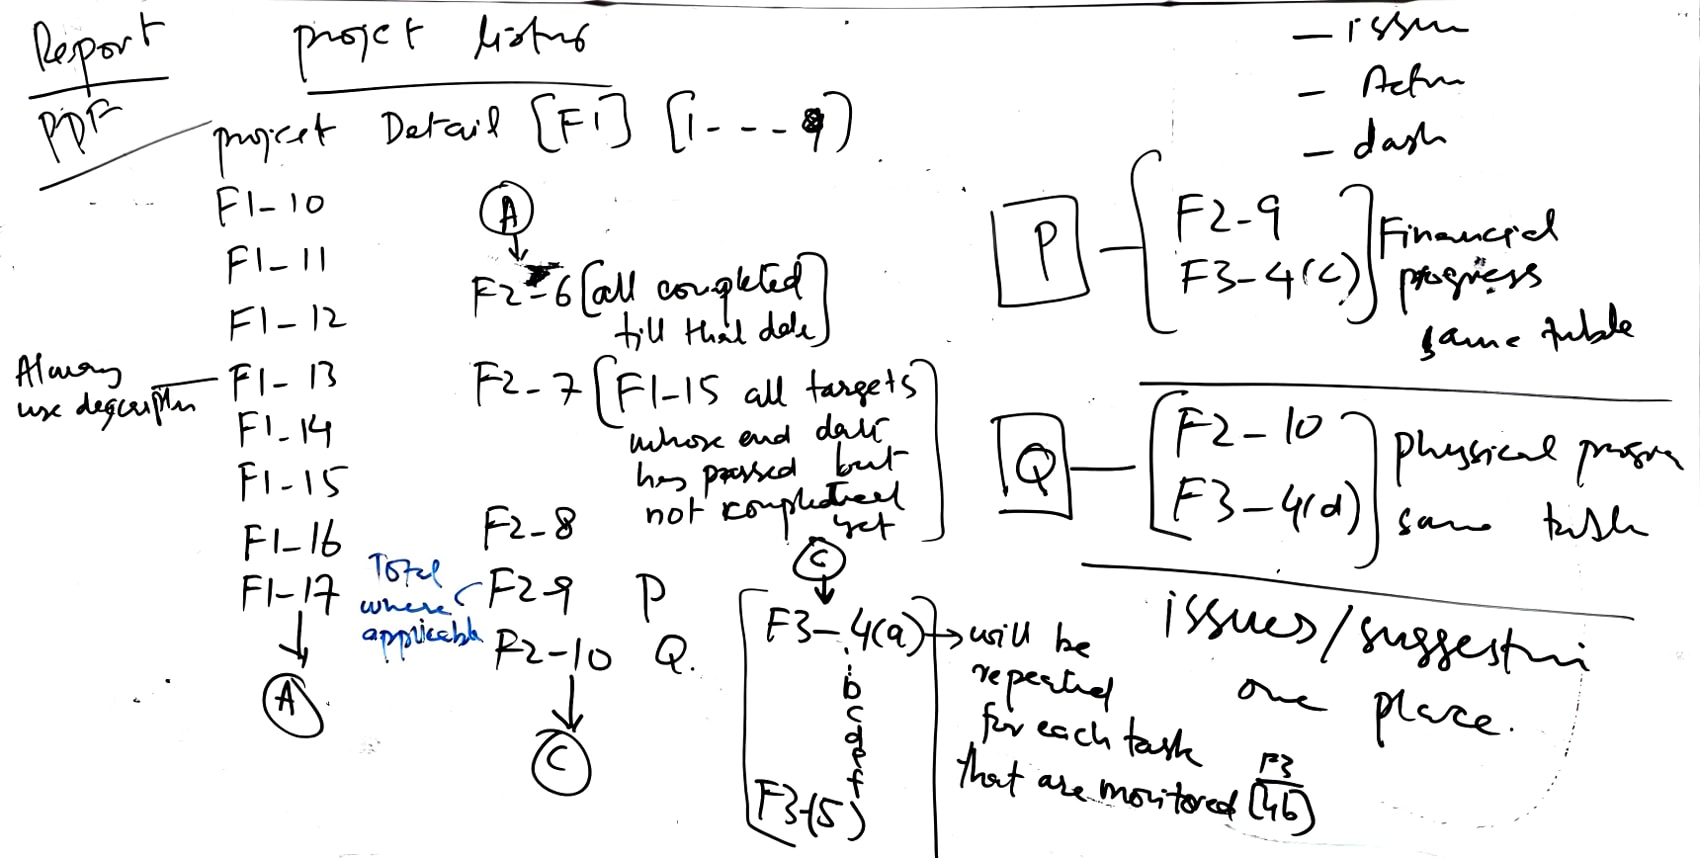 Report
PDF
project listing
project Detail [F1] [1---9]
F1-10
F1-11
F1-12
F1-13
Always
use description
F1-14
F1-15
F1-16
F1-17
A
A
F2-6 [all completed
till that date]
F2-7 [F1-15 all targets
whose end date
has passed but
not completed
yet]
F2-8
Total
where
applicable
F2-9 P
F2-10 Q.
C
C
F3-4(a)
b
c
d
e
f
F3-(5)
→ will be
repeated
for each task
that are monitored (F3
4b)
- issue
- Actn
- dash
P - F2-9
F3-4(c)
Financial
progress
same table
Q - F2-10
F3-4(d)
physical progre
same table
issues/suggestni
one place.